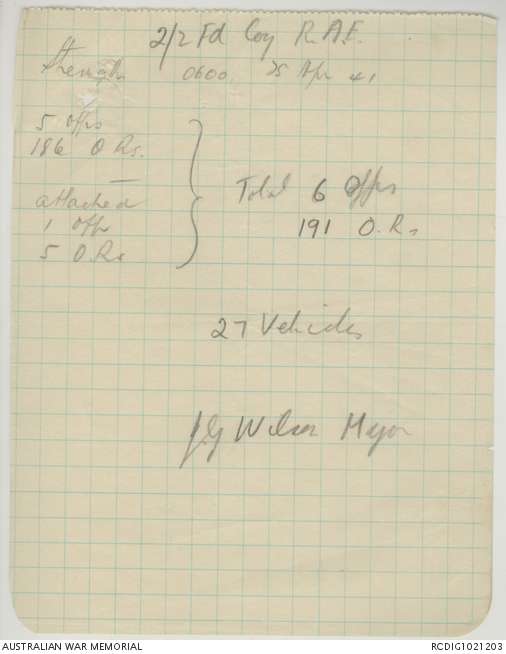 2/2 Fd Coy R.A.E.
Strength 0600 25 Apr 41
5 Offrs
186 O Rs.
attached
1 Offr
5 O.Rs
Total 6 Offrs
191 O.Rs
27 Vehicles
J G Wilson Major
AUSTRALIAN WAR MEMORIAL
RCDIG1021203